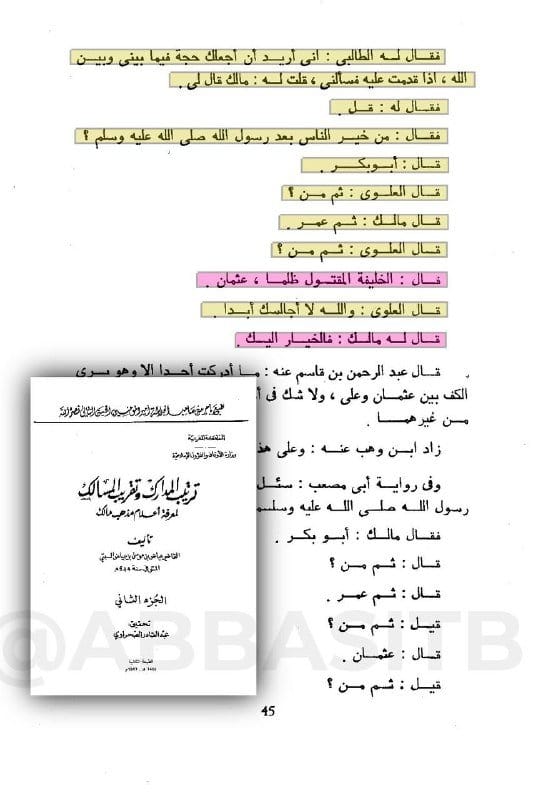 فقال له الطالبي : انى أريد أن أجعلك حجة فيما بينى وبين
الله ، اذا قدمت عليه فسألنى ، قلت له : مالك قال لى .
فقال له : قل .
فقال : من خير الناس بعد رسول الله صلى الله عليه وسلم ؟
قال : أبوبكر .
قال العلوى : ثم من ؟
قال مالك : ثم عمر .
قال العلوى : ثم من ؟
قال : الخليفة المقتول ظلما ، عثمان .
قال العلوى : والله لا أجالسك أبدا .
قال له مالك : فالخيار اليك .
قال عبد الرحمن بن قاسم عنه : ما أدركت أحدا الا وهو يرى
الكف بين عثمان وعلى ، ولا شك فى أ
من غيرهما .
زاد ابن وهب عنه : وعلى هذ
وفى رواية أبى مصعب : سئل
رسول الله صلى الله عليه وسلم
فقال مالك : أبو بكر .
قال : ثم من ؟
قال : ثم عمر .
قيل : ثم من ؟
قال : عثمان .
قيل : ثم من ؟
45
المملكة المغربية
وزارة الأوقاف والشؤون الإسلامية
ترتيب المدارك وتقريب المسالك
لمعرفة أعلام مذهب مالك
تأليف
الجزء الثاني
تحقيق
عبد القادر الصحراوي
@ABBASITB